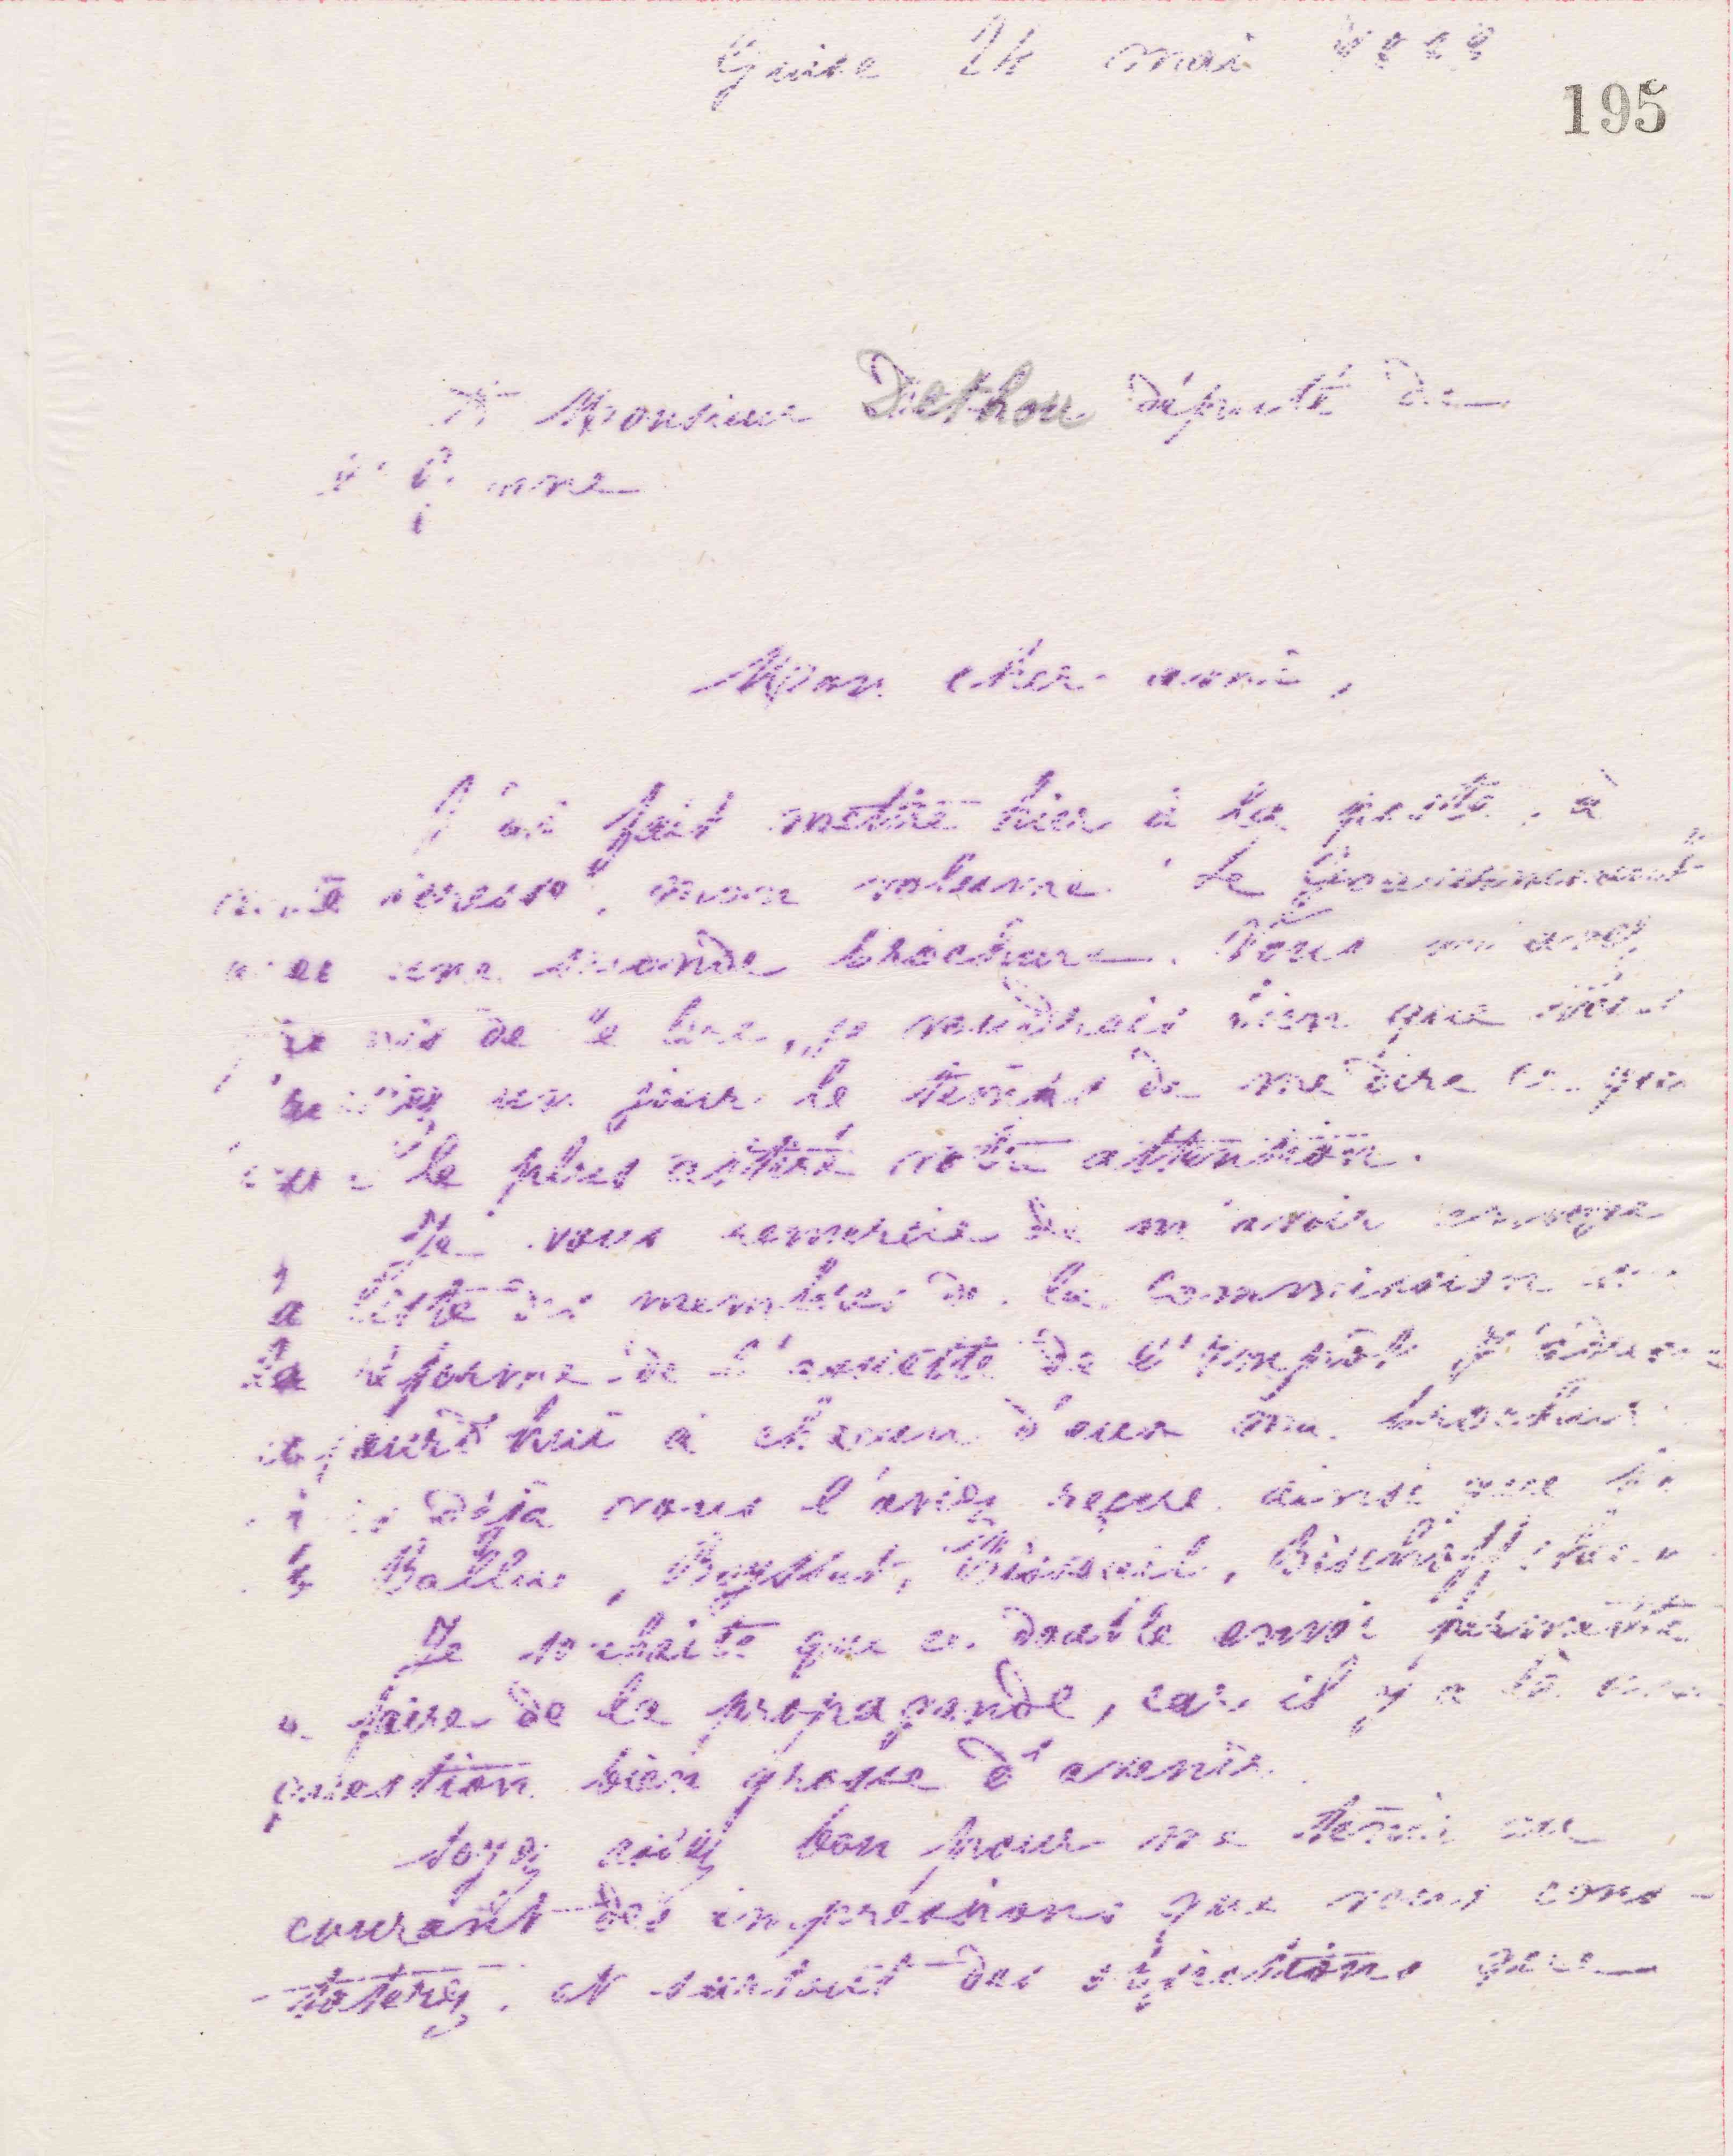 Guise 24 mai
195
A Monsieur Dethou député de
l'Yonne
Mon cher ami,
J'ai fait mettre hier à la poste, à
votre adresse, mon volume Le Gouvernement
avec une seconde brochure. Vous m'avez
promis de le lire, je voudrais bien que vous
un jour le temps de me dire ce qui
aura le plus attiré votre attention.
Je vous remercie de m'avoir envoyé
la liste des membres de la Commission de
la réforme de l'assiette de l'impôt. J'adresse
aujourd'hui à chacun d'eux ma brochure
déjà vous l'aviez reçue ainsi que
Ballue, Boysset, Bisseuil, Bischoffsheim
Je souhaite que ce double envoi permette
de faire de la propagande, car il y a là une
question bien grosse d'avenir.
Soyez assez bon pour me tenir au
courant des impressions que vous cons-
-taterez, et surtout des objections que